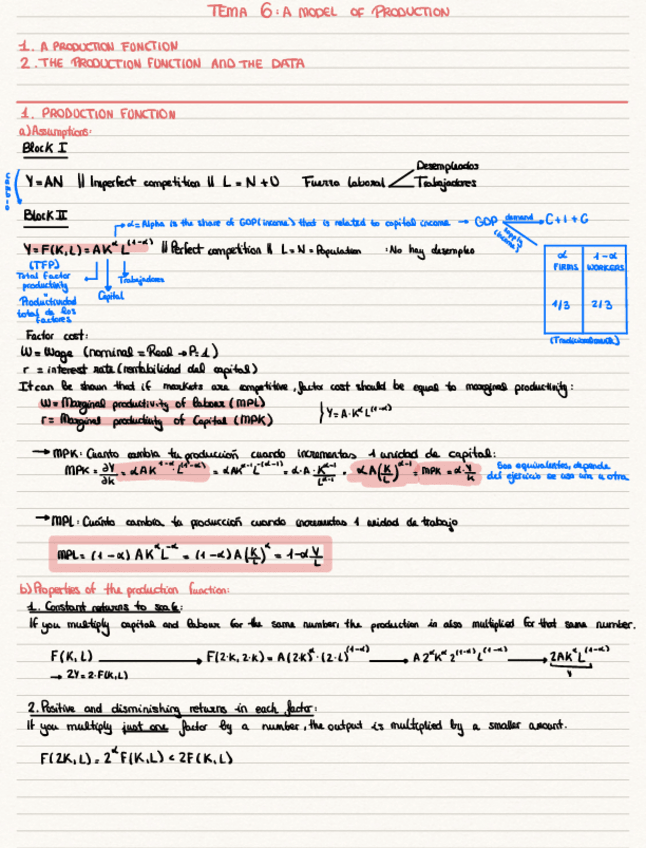 TEMA 6: A MODEL OF PRODUCTION
1. A PRODUCTION FUNCTION
2. THE PRODUCTION FUNCTION AND THE DATA
1. PRODUCTION FUNCTION
a) Assumptions:
Block I
Y=AN || Imperfect competition || L = N + U Fuerza laboral
Desempleados
Trabajadores
Cambio
Block II
α=Alpha is the share of GDP(income) that is related to capital income → GDP demand → C+I+G
supply (income)
Y=F(K,L)=AK^α L^(1-α) || Perfect competition || L=N=Population : No hay desempleo
(TFP)
Total Factor productivity
=
Productividad total de los factores
Capital
Trabajadores
α FIRMS 1-α WORKERS
1/3 2/3
(Tradicionalmente)
Factor cost:
W= Wage (nominal = Real → P=1)
r = interest rate (rentabilidad del capital)
It can be shown that if markets are competitive, factor cost should be equal to marginal productivity:
W= Marginal productivity of Labour (MPL)
r= Marginal productivity of Capital (MPK)
} Y=A·K^α L^(1-α)
→ MPK: Cuanto cambia tu producción cuando incrementas 1 unidad de capital:
Son equivalentes, depende del ejercicio se usa una u otra
→ MPL: Cuánto cambia la producción cuando incrementas 1 unidad de trabajo
MPL= (1-α) AK^α L^-α = (1-α) A(K/L)^α = 1-α Y/L
b) Properties of the production function:
1. Constant returns to scale:
If you multiply capital and labour for the same number, the production is also multiplied for that same number.
F(K,L) → F(2·K, 2·L) = A(2·K)^α·(2·L)^(1-α) → A2^αK^α 2^(1-α) L^(1-α) → 2AK^αL^(1-α)
Y
→ 2Y=2·F(K,L)
2. Positive and disminishing returns in each factor:
If you multiply just one factor by a number, the output is multiplied by a smaller amount.
F(2K,L)=2^α F(K,L) < 2F(K,L)